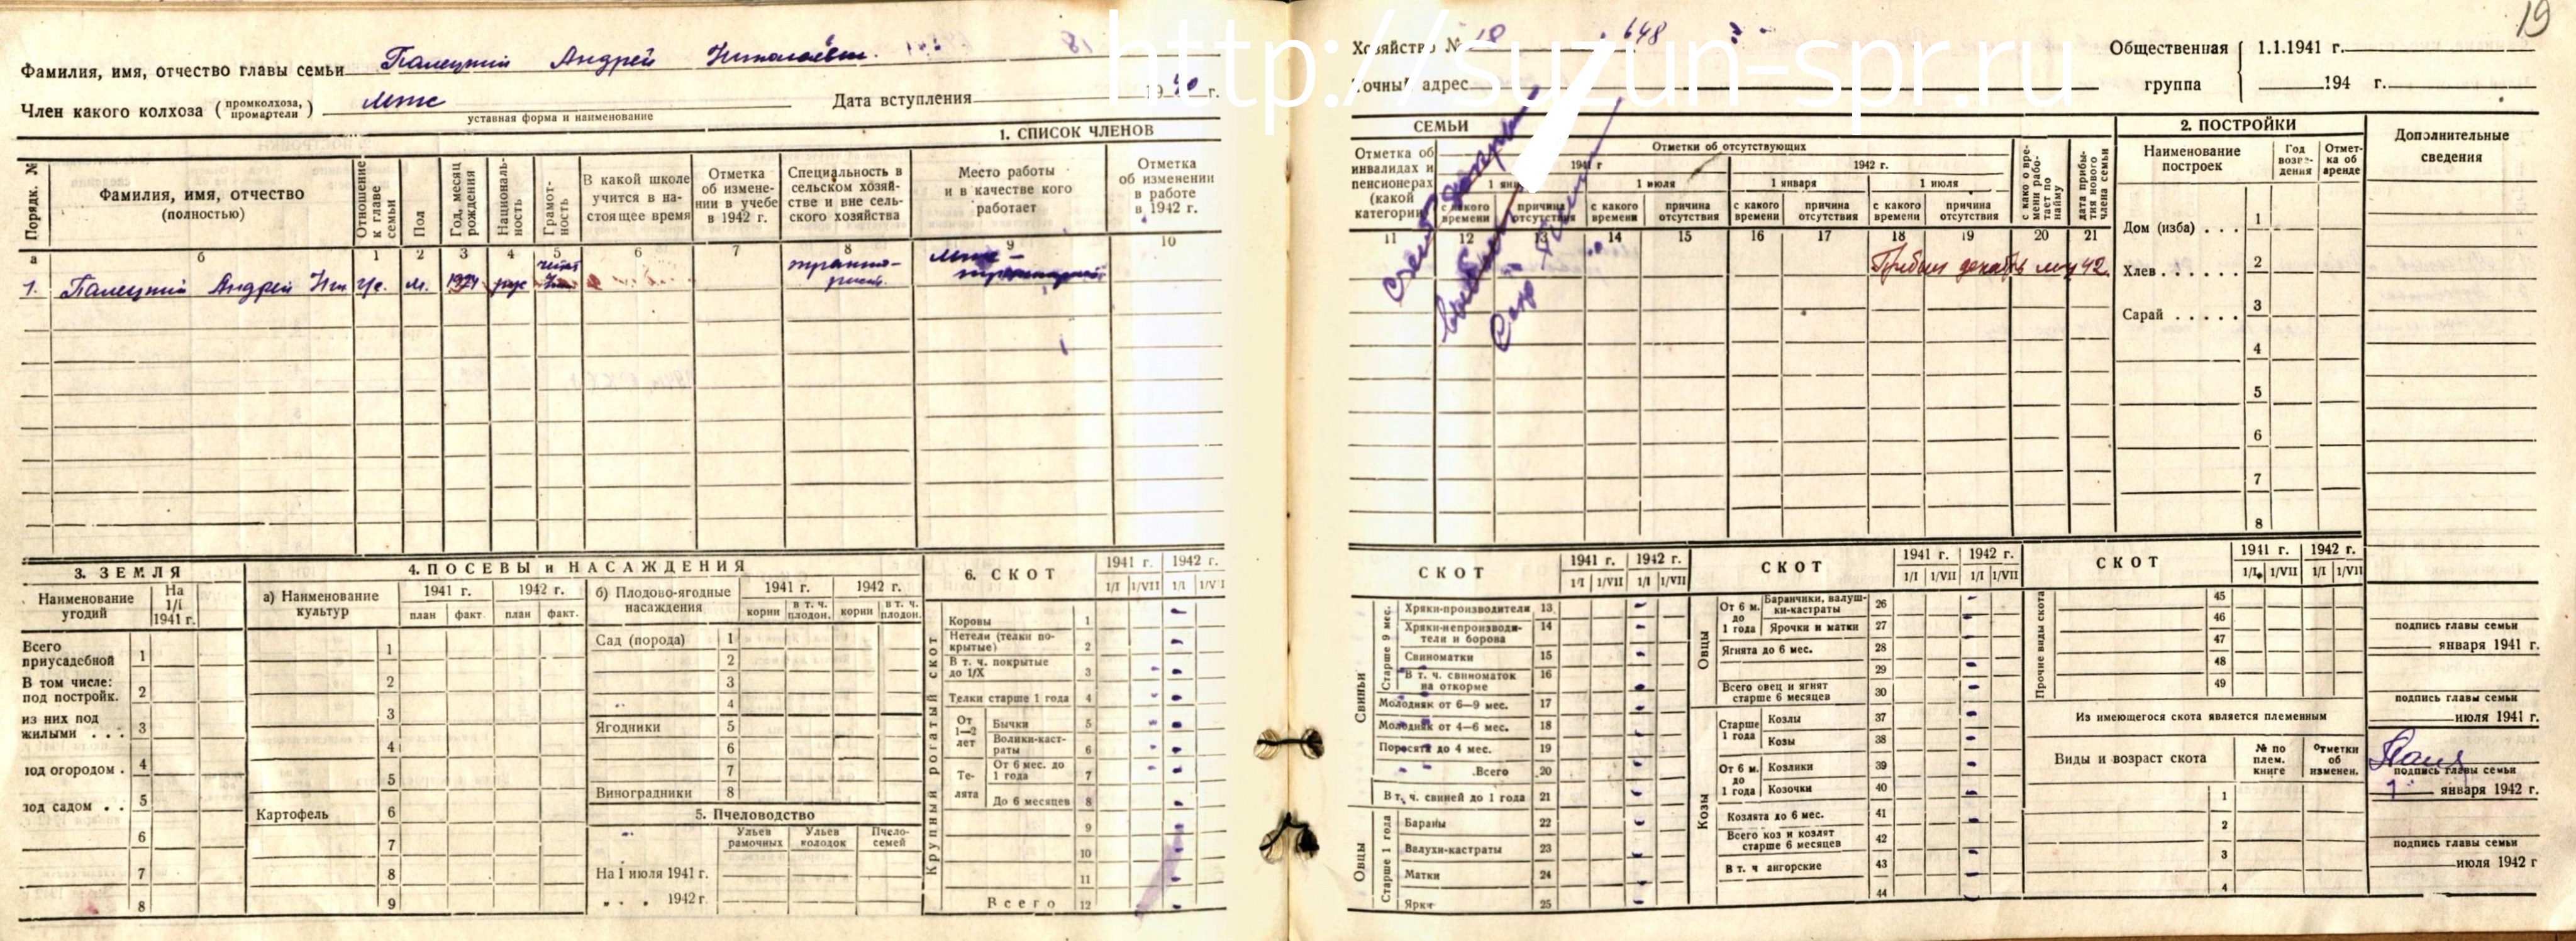 19
http://syzun-spr.ru
Фамилия, имя, отчество главы семьи Палецкий Андрей Николаевич.
Член какого колхоза (промколхоза, промартели) мтс
уставная форма и наименование
Дата вступления 1940 г.
Хозяйство № 18 648
Точный адрес
Общественная группа
1.1.1941 г.
194 г.
1. СПИСОК ЧЛЕНОВ СЕМЬИ
Порядк. №
Фамилия, имя, отчество (полностью)
Отношение к главе семьи
Пол
Год, месяц рождения
Националь-ность
Грамот-ность
В какой школе учится в на-стоящее время
Отметка об измене-нии в учебе в 1942 г.
Специальность в сельском хозяй-стве и вне сель-ского хозяйства
Место работы и в качестве кого работает
Отметка об изменении в работе в 1942 г.
Отметка об инвалидах и пенсионерах (какой категории
Отметки об отсутствующих
1941 г
1942 г.
1 янв
1 июля
1 января
1 июля
с какого времени
причина отсутствия
с какого времени
причина отсутствия
с какого времени
причина отсутствия
с какого времени
причина отсутствия
с како о вре-мени рабо-тает по найму
дата прибы-тия нового члена семьи
а б 1 2 3 4 5 6 7 8 9 10
11 12 13 14 15 16 17 18 19 20 21
1. Палецкий Андрей Ник г/с. м. 1924 рус
мтс -
Прибыл декабрь м-ц 42
2. ПОСТРОЙКИ
Наименование построек
Год возве-дения
Отмет-ка об аренде
Дом (изба) . . . 1
Хлев . . . . . 2
Сарай . . . . . 3
4
5
6
7
8
Дополнительные сведения
3. ЗЕМЛЯ
Наименование угодий
На 1/I 1941 г.
Всего приусадебной 1
В том числе: под постройк. 2
из них под жилыми . . . 3
под огородом . 4
под садом . . 5
6
7
8
4. ПОСЕВЫ и НАСАЖДЕНИЯ
а) Наименование культур
1941 г.
1942 г.
план факт. план факт.
1
2
3
4
5
Картофель 6
7
8
9
б) Плодово-ягодные насаждения
1941 г.
1942 г.
корни в т. ч. плодон. корни в т. ч. плодон.
Сад (порода) 1
2
3
4
Ягодники 5
6
7
Виноградники 8
5. Пчеловодство
Ульев рамочных
Ульев колодок
Пчело-семей
На 1 июля 1941 г.
. . . 1942 г.
6. СКОТ
1941 г. 1942 г.
1/I 1/VII 1/I 1/VI
Крупный рогатый скот
Коровы 1
Нетели (телки по-крытые) 2
В т. ч. покрытые до 1/X 3
Телки старше 1 года 4
От 1—2 лет
Бычки 5
Волики-каст-раты 6
Те-лята
От 6 мес. до 1 года 7
До 6 месяцев 8
9
10
11
Всего 12
СКОТ
1941 г. 1942 г.
1/I 1/VII 1/I 1/VII
Свиньи
Старше 9 мес.
Хряки-производители 13
Хряки-непроизводи-тели и борова 14
Свиноматки 15
В т. ч. свиноматок на откорме 16
Молодняк от 6—9 мес. 17
Молодняк от 4—6 мес. 18
Поросята до 4 мес. 19
Всего 20
В т. ч. свиней до 1 года 21
Овцы
Старше 1 года
Бараны 22
Валухи-кастраты 23
Матки 24
Ярки 25
СКОТ
1941 г. 1942 г.
1/I 1/VII 1/I 1/VII
Овцы
От 6 м. до 1 года
Баранчики, валуш-ки-кастраты 26
Ярочки и матки 27
Ягнята до 6 мес. 28
29
Всего овец и ягнят старше 6 месяцев 30
Козы
Старше 1 года
Козлы 37
Козы 38
От 6 м. до 1 года
Козлики 39
Козочки 40
Козлята до 6 мес. 41
Всего коз и козлят старше 6 месяцев 42
В т. ч ангорские 43
44
СКОТ
1941 г. 1942 г.
1/I 1/VII 1/I 1/VII
Прочие виды скота
45
46
47
48
49
Из имеющегося скота является племенным
Виды и возраст скота
№ по плем. книге
Отметки об изменен.
1
2
3
4
подпись главы семьи
января 1941 г.
подпись главы семьи
июля 1941 г.
подпись главы семьи
1 января 1942 г.
подпись главы семьи
июля 1942 г